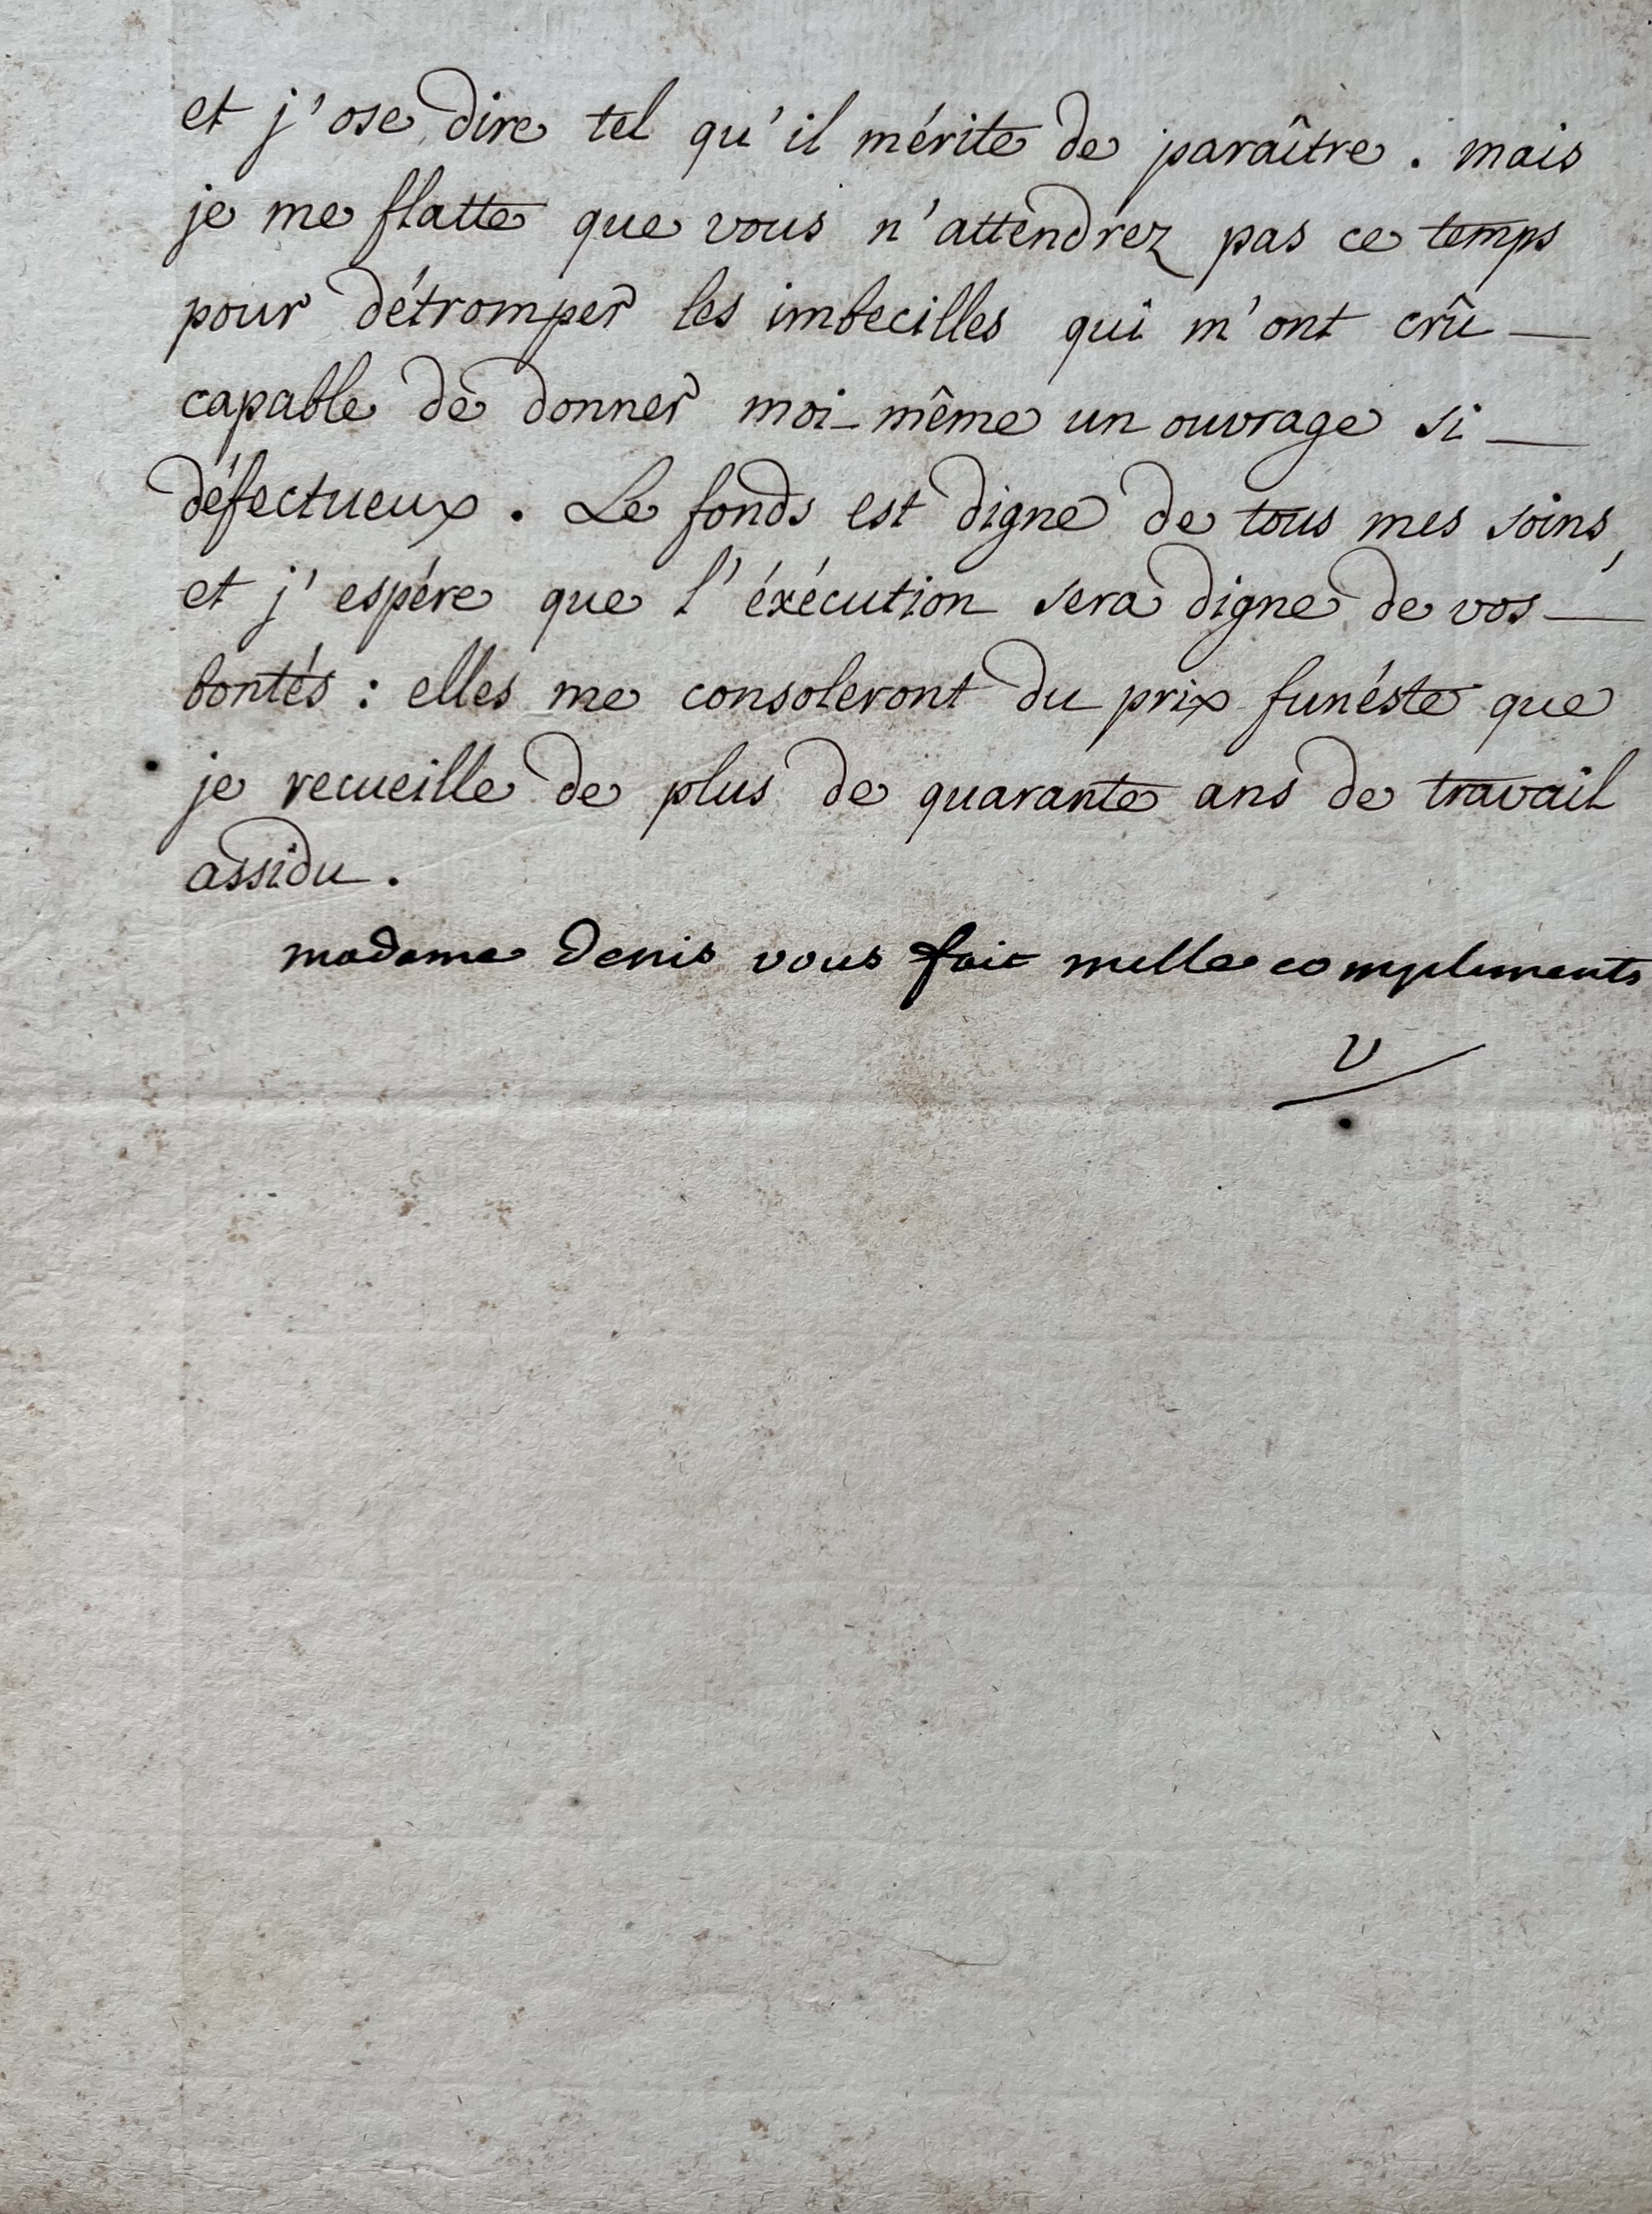 et j'ose dire tel qu'il mérite de paraître. mais
je me flatte que vous n'attendrez pas ce temps
pour détromper les imbecilles qui m'ont crû —
capable de donner moi-même un ouvrage si —
défectueux. Le fonds est digne de tous mes soins,
et j'espére que l'éxécution sera digne de vos —
bontés : elles me consoleront du prix funéste que
je recueille de plus de quarante ans de travail
assidu.
madame Denis vous fait mille compliments
V